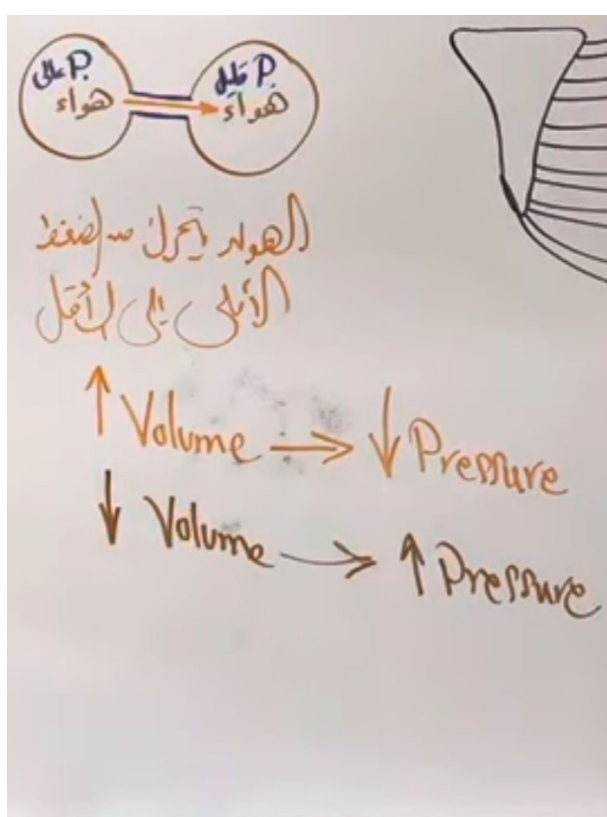 P. عالي
هواء
P. قليل
هواء
الهواء يتحرك من الضغط
الأعلى إلى الأقل
↑ Volume → ↓ Pressure
↓ Volume → ↑ Pressure